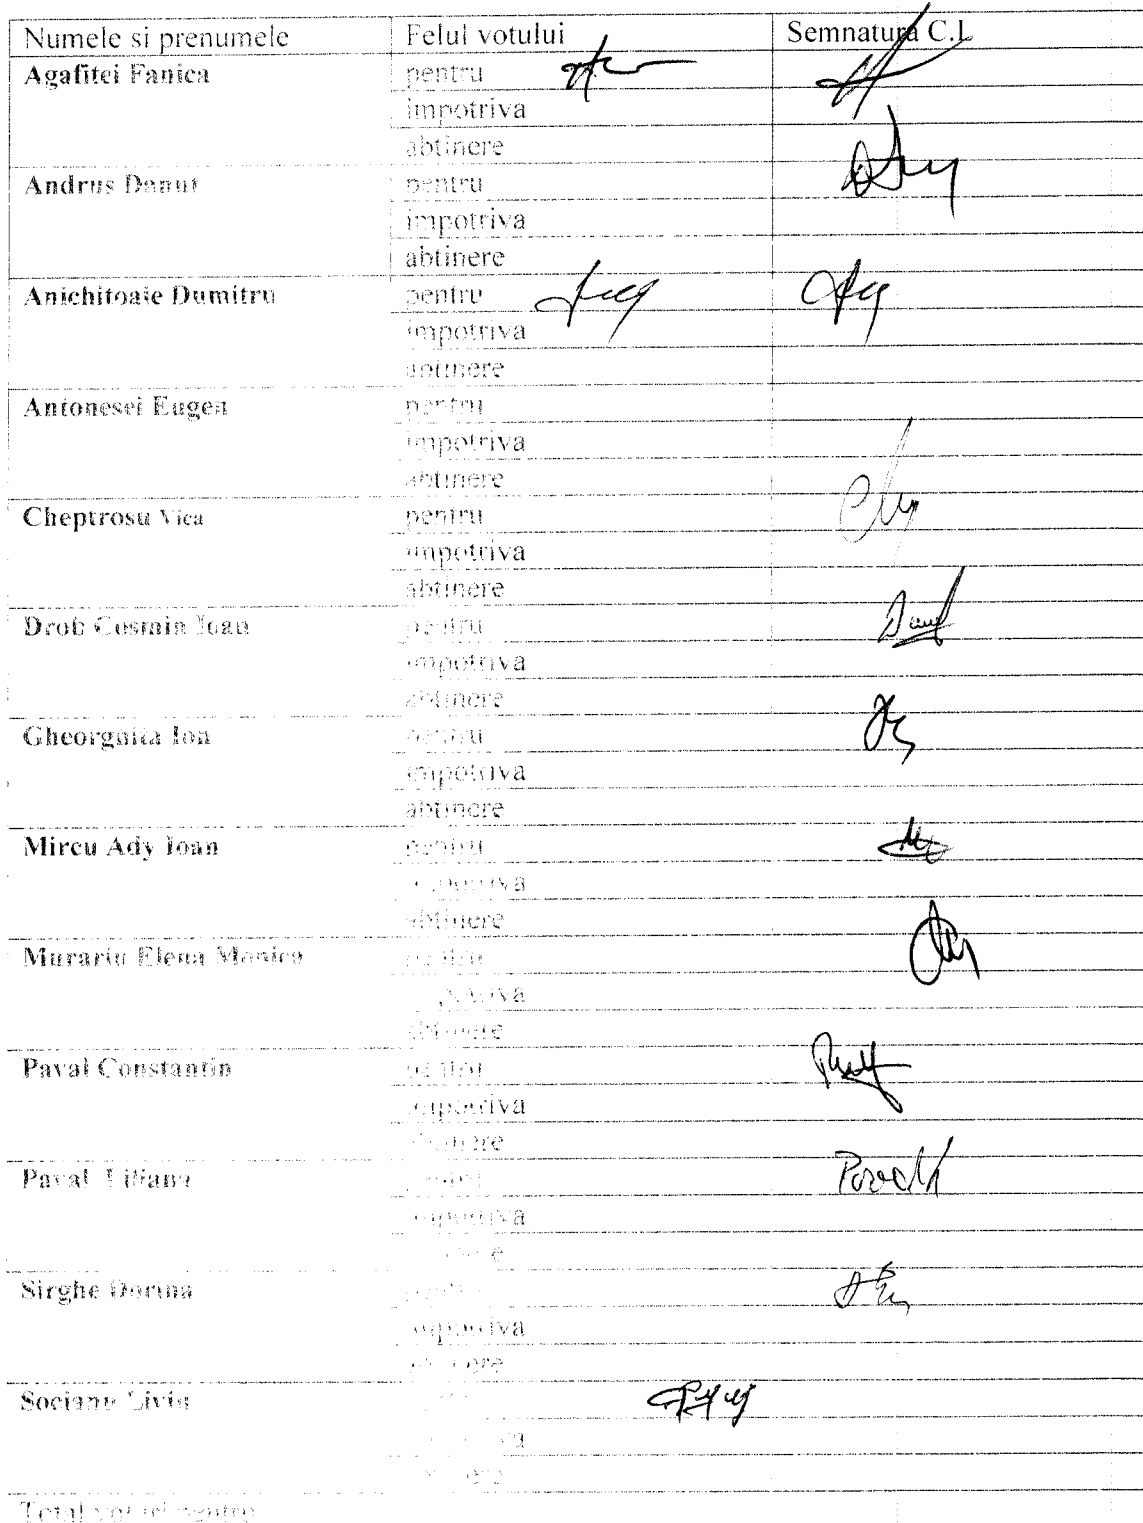 Numele si prenumele Felul votului Semnatura C.L
Agafitei Fanica pentru
impotriva
abtinere
Andrus Danut pentru
impotriva
abtinere
Anichitoaie Dumitru pentru
impotriva
abtinere
Antonesei Eugen pentru
impotriva
abtinere
Cheptrosu Vica pentru
impotriva
abtinere
Drob Cosmin Ioan pentru
impotriva
abtinere
Gheorghita Ion pentru
impotriva
abtinere
Mircu Ady Ioan pentru
impotriva
abtinere
Murariu Elena Monica pentru
impotriva
abtinere
Paval Constantin pentru
impotriva
abtinere
Paval Liliana
impotriva
Sirghe Dorina
impotriva
Socianu Liviu
Total voturi pentru